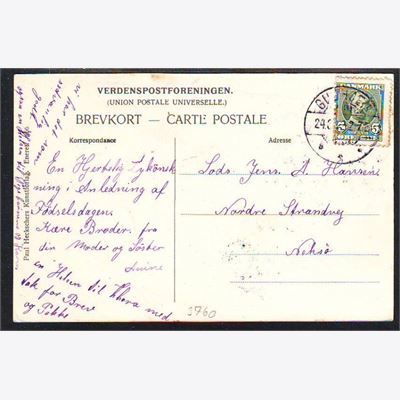 VERDENSPOSTFORENINGEN.
(UNION POSTALE UNIVERSELLE.)
BREVKORT — CARTE POSTALE
Korrespondance
Adresse
En Hjertelig Lykönsk
ning i Anledning af
Födselsdagen
Kære Broder. fra
din Moder og Söster
en Hilsen til Thora med
tak for Brev
og Pakke
Lods Jens. A. Hansen
Nordre Strandvej
Neksö
3760
Paul Heckschers Kunstforlag
vi har det
DANMARK
5 5
24.